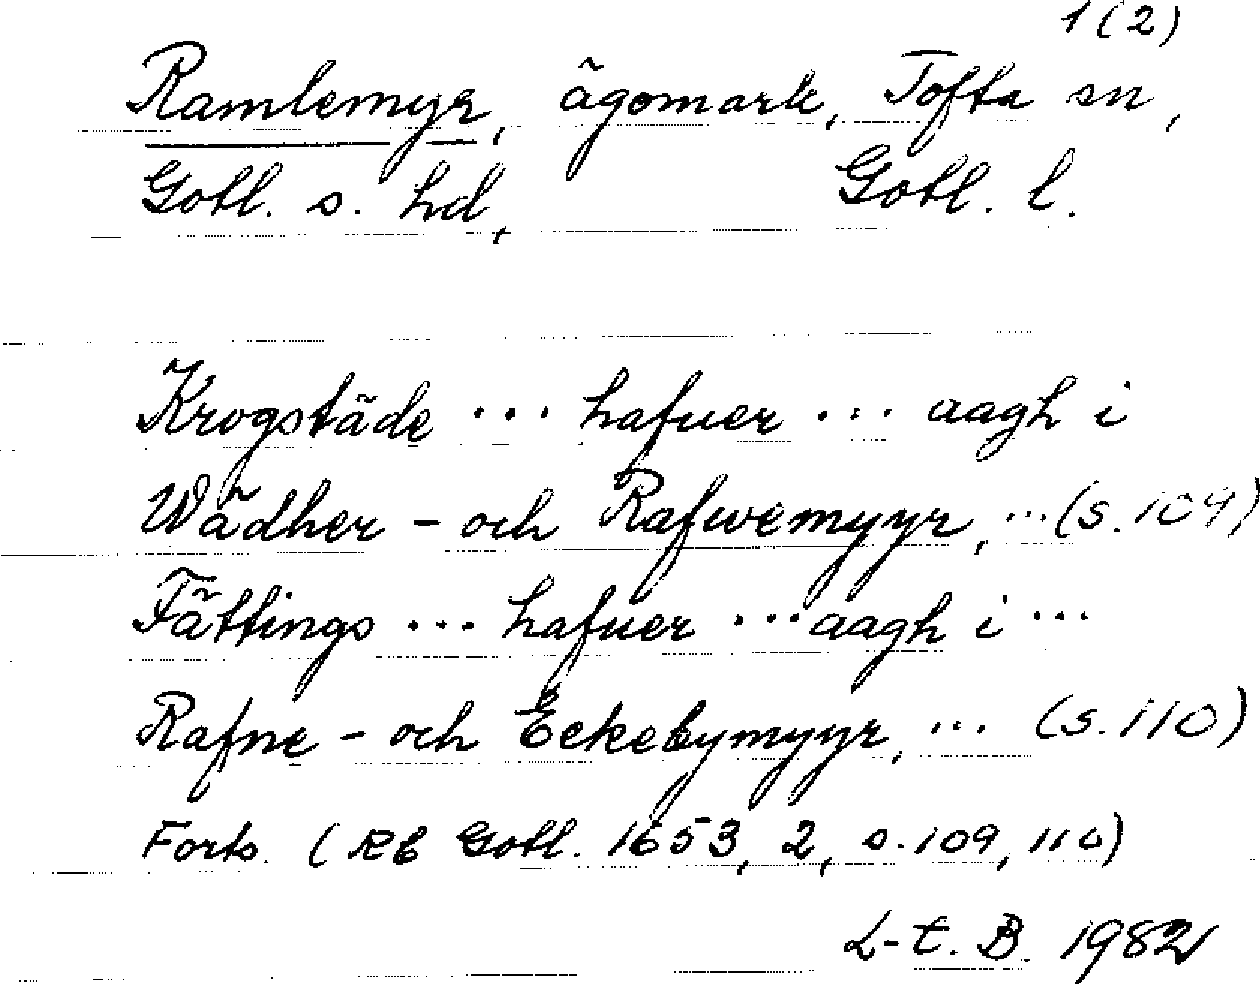 1(2)
Ramlemyr, ägomark, Tofta sn,
Gotl. s. hd, Gotl. l.
Krogstäde ... hafuer ... aagh i
Wädher - och Rafwemyyr, ... (s. 109)
Fättings ... hafuer ... aagh i ...
Rafne - och Eckebymyyr, ... (s. 110)
Forts. (RB Gotl. 1653, 2, s. 109, 110)
L-t. B. 1982